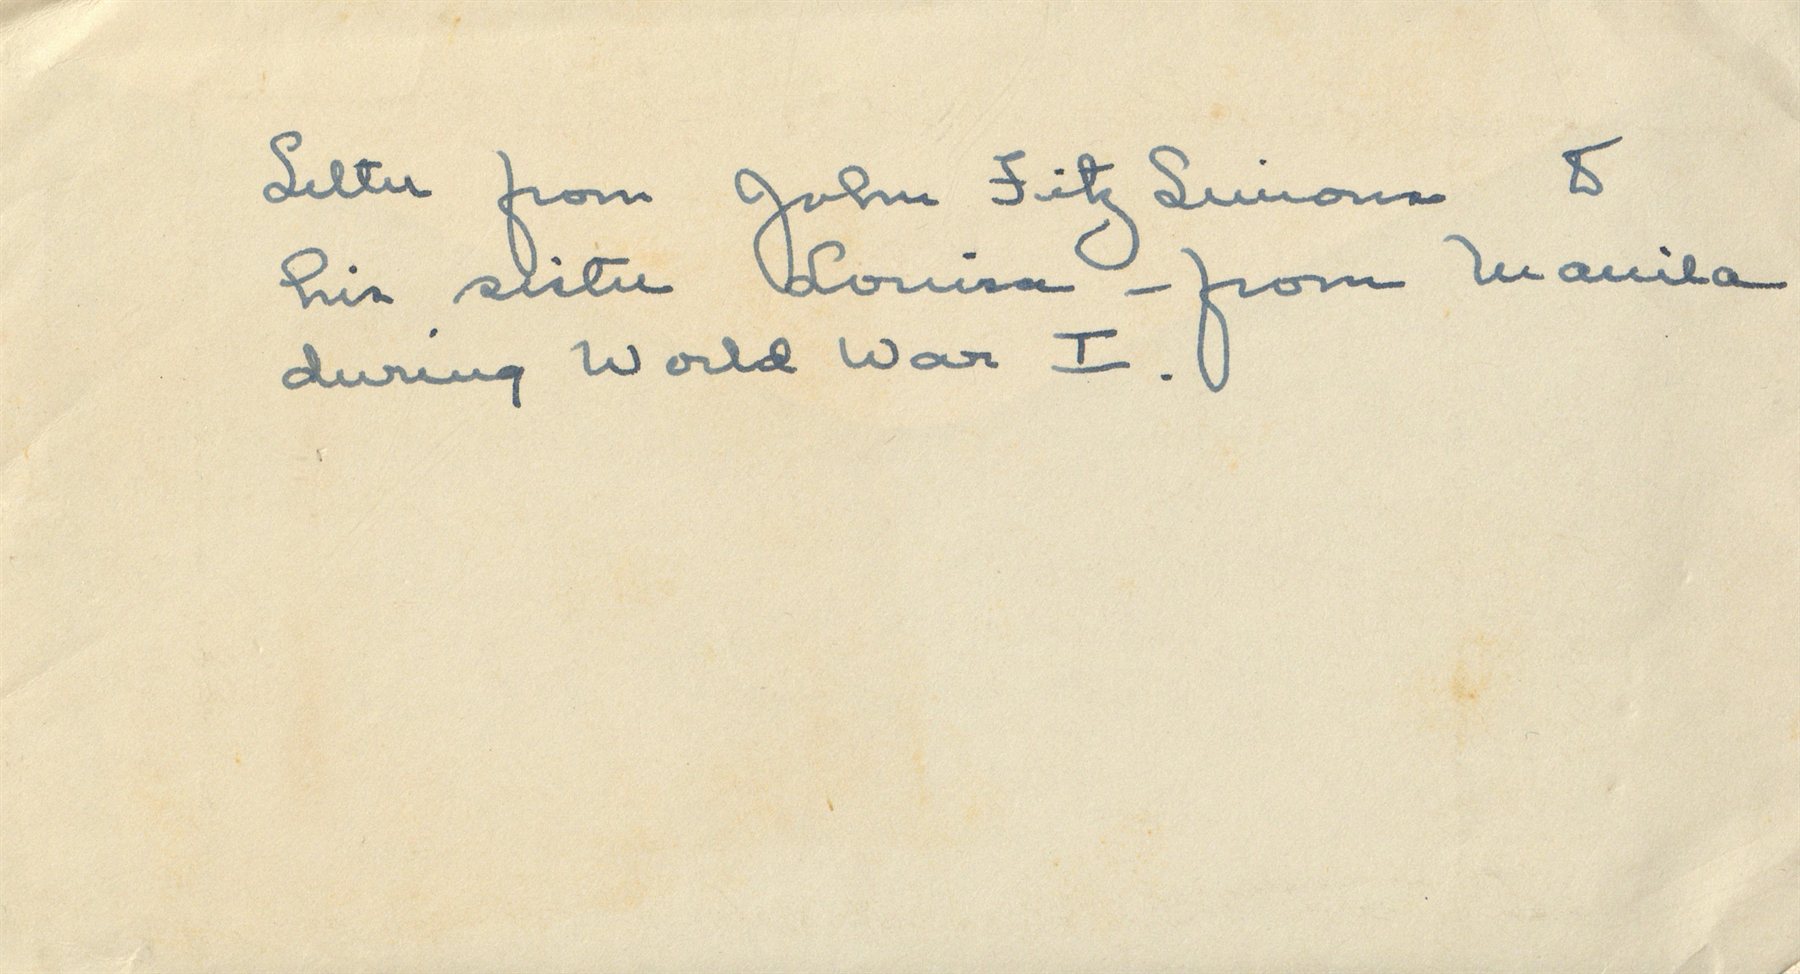 Letter from John FitzSimons to
his sister Louisa - from Manila
during World War I.